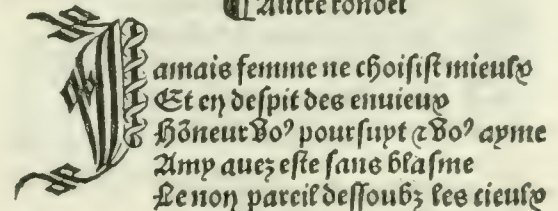 ¶ Autre rondel
Jamais femme ne choisist mieulx
Et en despit des enuieux
Hõneur voꝰ poursuyt ⁊ voꝰ ayme
Amy auez este sans blasme
Le non pareil dessoubz les cieulx